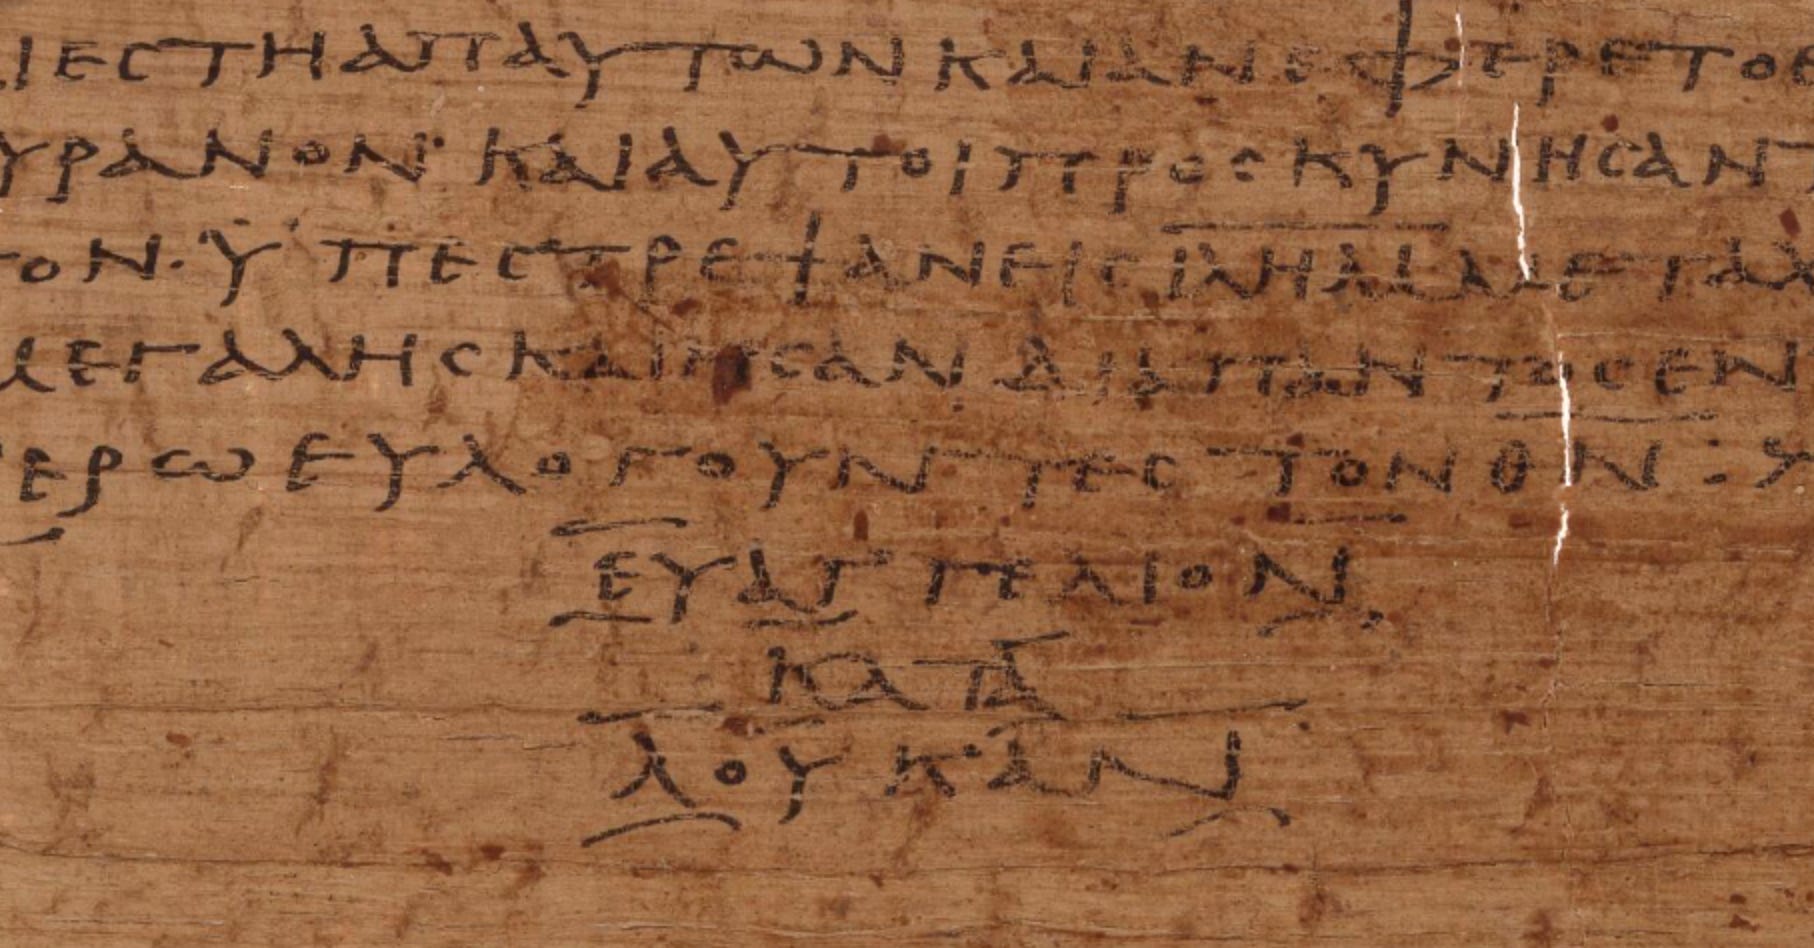 ΙΕϹΤΗΑΠΑΥΤΩΝΚΑΙΑΝΕΦΕΡΕΤΟΕ
ΥΡΑΝΟΝ· ΚΑΙΑΥΤΟΙΠΡΟϹΚΥΝΗϹΑΝΤ
ΤΟΝ·ΫΠΕϹΤΡΕΨΑΝΕΙϹΙ̅Λ̅Η̅Μ̅ΜΕΤΑΧ
ΜΕΓΑΛΗϹΚΑΙΗϹΑΝΔΙΑΠΑΝΤΟϹΕΝ
ΙΕΡΩΕΥΛΟΓΟΥΝΤΕϹΤΟΝΘ̅Ν̅:
ΕΥΑΓΓΕΛΙΟΝ
ΚΑΤΑ
ΛΟΥΚΑΝ